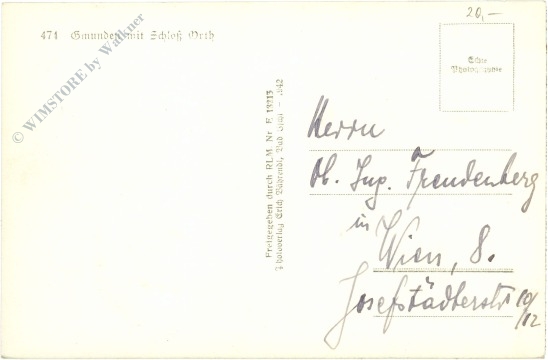 20,–
471 Gmunden mit Schloß Orth
© WIMSTORE by Walkner
Echte
Photographie
Freigegeben durch RLM Nr. E 13213
Photoverlag Erich Bährendt, Bad Ischl - 1942
Herrn
Ob. Ing. Freudenberg
in
Wien, 8.
Josefstädterstr 10/12